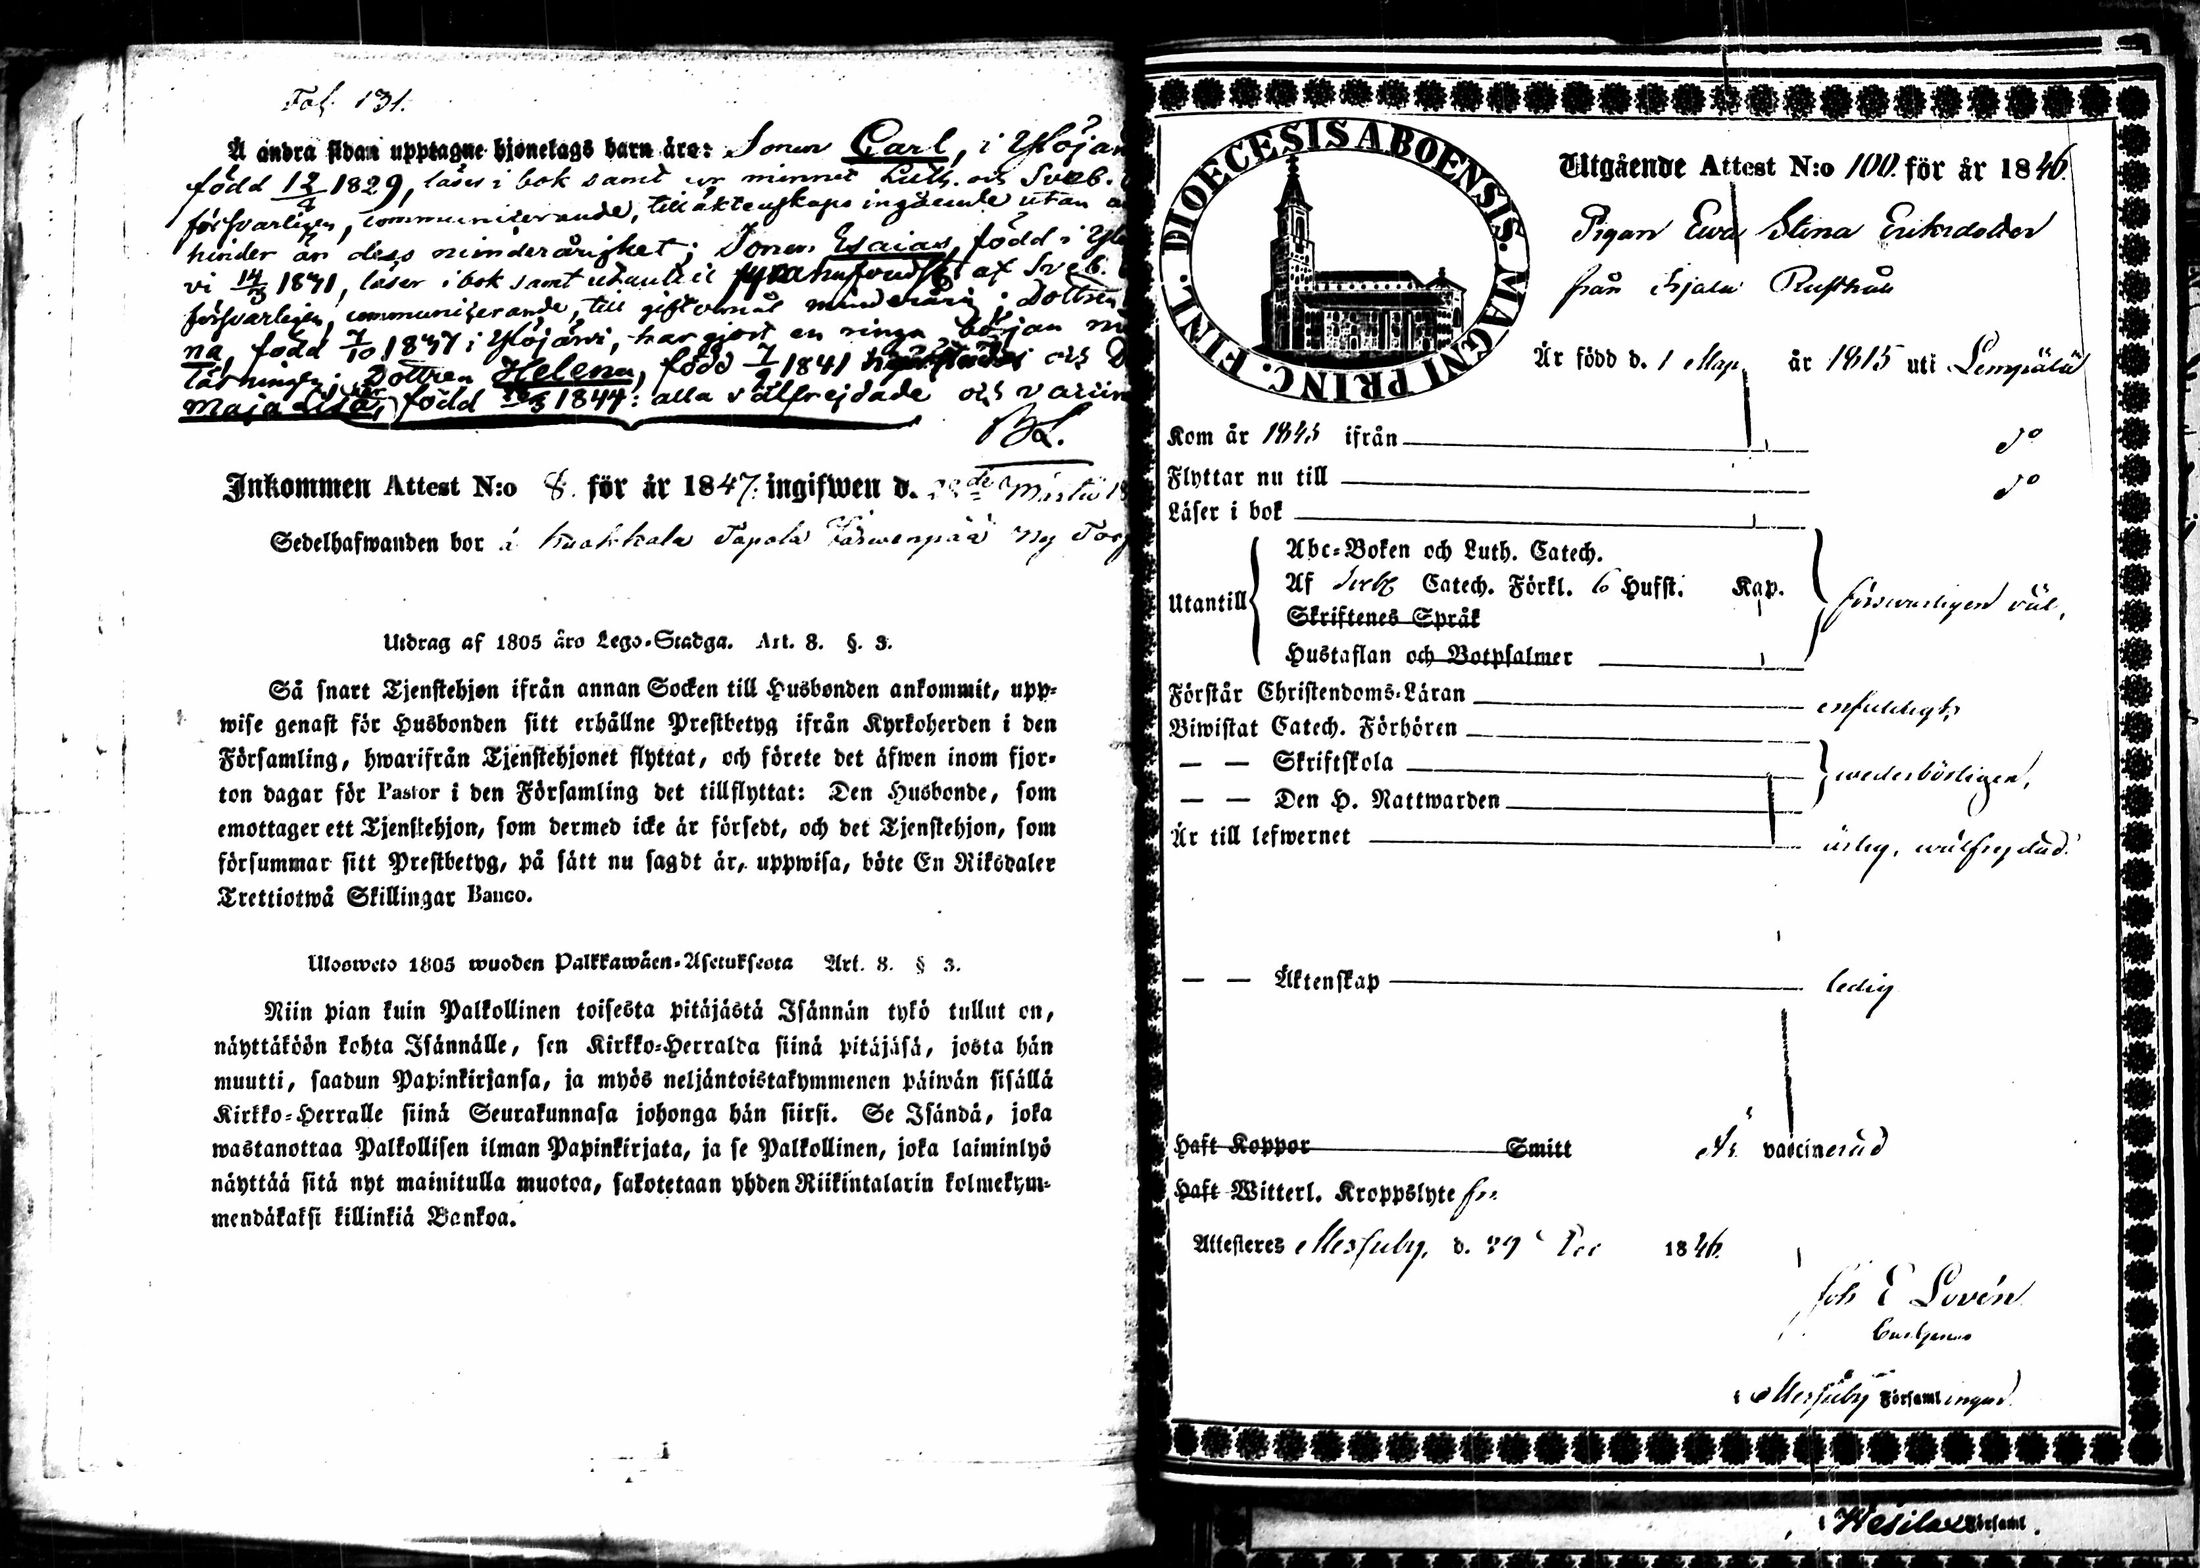 Fol. 131.
Å andra sidan upptagne hjonelags barn äro: Sonen Carl, i Ylöjär
född 12/9 1829, läser i bok samt ur minnet Luth. och Sveb.
försvarligen, communicerande, till äktenskaps ingående utan
hinder än dess minderårighet; Sonen Esaias, född i Ylö
vi 14/3 1831, läser i bok samt utantill fyra hufvudst. af Sveb.
försvarligen, communicerande, till giftomål minderårig; Dottren
na, född 7/10 1837 i Ylöjärvi, har gjort en ringa början
läsningen; Dottren Helena, född 7/9 1841 och
Maja Lisa, född 1844: alla välfrejdade och vaccin
BL.
Inkommen Attest N:o 8. för år 1847. ingifwen d. Martii 18
Sedelhafwanden bor å Kuokkala Tapola Järwenpää Ny Torp
Utdrag af 1805 års Lego-Stadga. Art. 8. §. 3.
Så snart Tjenstehjon ifrån annan Socken till Husbonden ankommit, upp-
wise genast för Husbonden sitt erhållne Prestbetyg ifrån Kyrkoherden i den
Församling, hwarifrån Tjenstehjonet flyttat, och förete det äfwen inom fjor-
ton dagar för Pastor i den Församling det tillflyttat: Den Husbonde, som
emottager ett Tjenstehjon, som dermed icke är försedt, och det Tjenstehjon, som
försummar sitt Prestbetyg, på sätt nu sagdt är, uppwisa, böte En Riksdaler
Trettiotwå Skillingar Banco.
Ulosweto 1805 wuoden Palkkawäen-Asetuksesta Art. 8. § 3.
Niin pian kuin Palkollinen toisesta pitäjästä Isännän tykö tullut on,
näyttäköön kohta Isännälle, sen Kirkko-Herralda siinä pitäjäsä, josta hän
muutti, saadun Papinkirjansa, ja myös neljäntoistakymmenen päiwän sisällä
Kirkko-Herralle siinä Seurakunnasa johonga hän siirsi. Se Isändä, joka
wastanottaa Palkollisen ilman Papinkirjata, ja se Palkollinen, joka laiminlyö
näyttää sitä nyt mainitulla muotoa, sakotetaan yhden Riikintalarin kolmekym-
mendäkaksi killinkiä Bankoa.
DIOECESIS ABOENSIS. MAGNI PRINC. FINL.
Utgående Attest N:o 100. för år 1846.
Pigan Ewa Stina Eriksdotter
från Rusthåll
Är född d. 1 Maji år 1815 uti Lempälä
Kom år 1845 ifrån do
Flyttar nu till do
Läser i bok
Utantill
Abc-Boken och Luth. Catech.
Af Sveb Catech. Förkl. 6 Hufst. Kap.
Skriftenes Språk
Hustaflan och Botpsalmer
försvarligen väl,
Förstår Christendoms-Läran enfaldigt,
Biwistat Catech. Förhören
— — Skriftskola wederbörligen,
— — Den H. Nattwarden
Är till lefwernet ärlig, wälfrejdad.
— — Äktenskap ledig
Haft Koppor Smitt Är vaccinerad
Haft Witterl. Kroppslyte fri
Attesteres Messuby, d. 29 Dec 1846.
Joh E Lovén
i Messuby Församlingar
i Wesilax Församl.